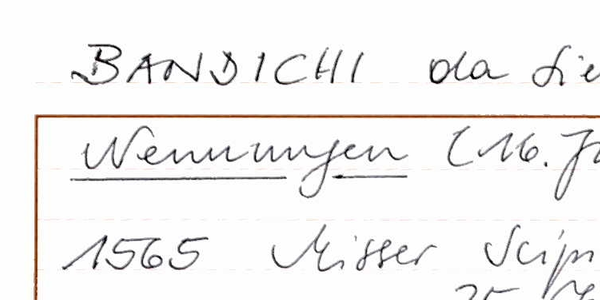 BANDICHI da Sie
Nennungen (16. J
1565 Misser Scip
25